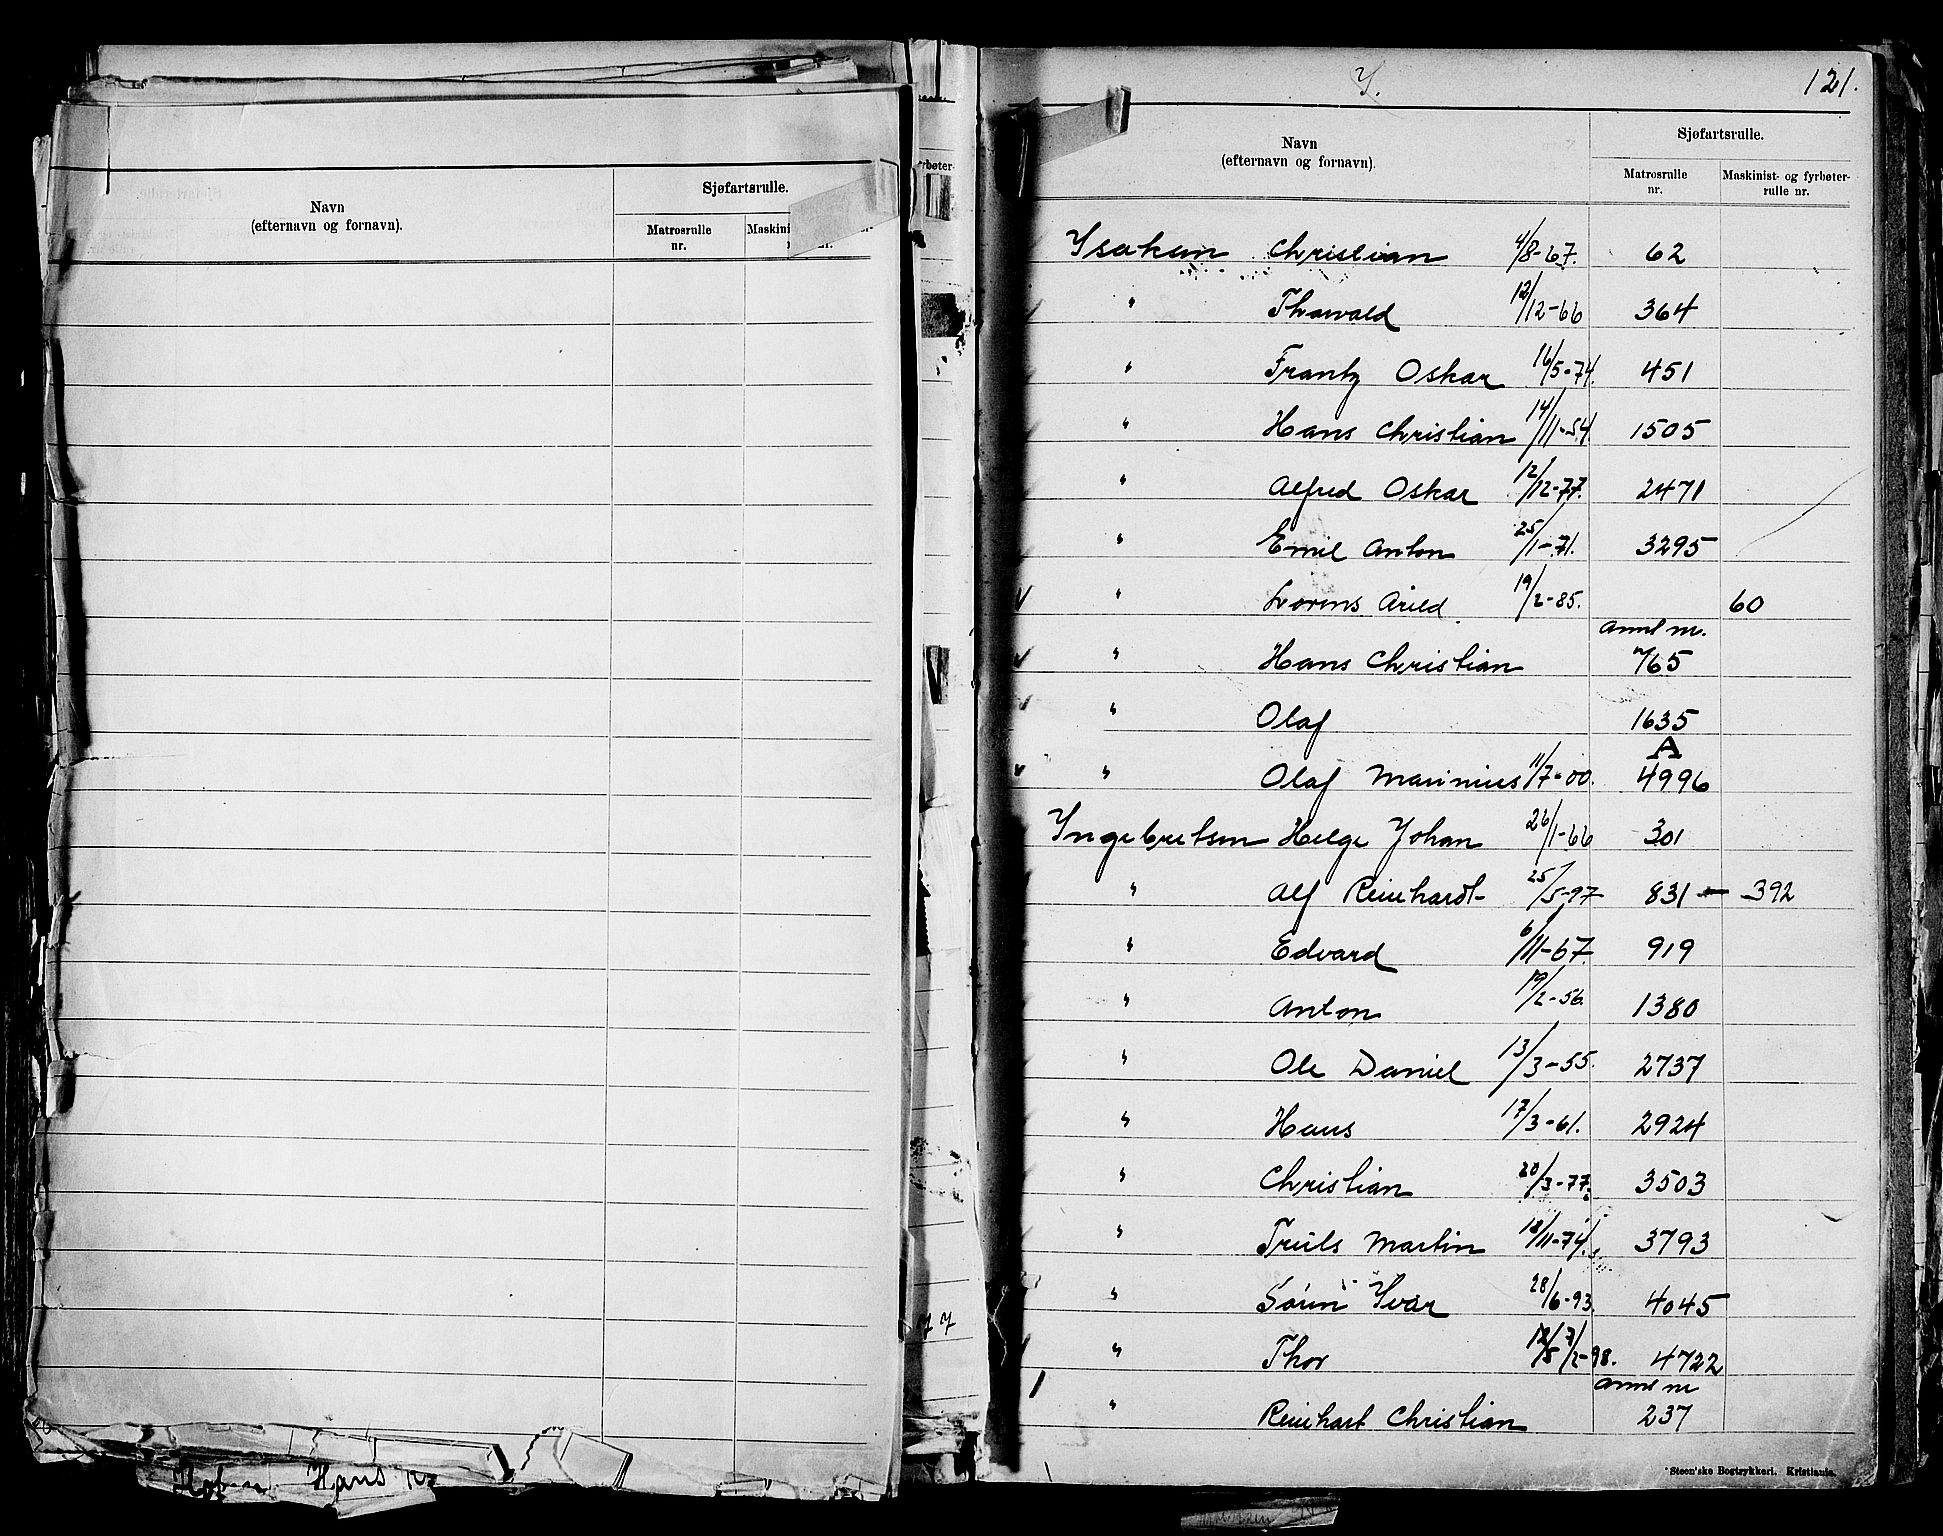 Navn
(efternavn og fornavn).
Sjøfartsrulle.
Matrosrulle
nr.
Maskini
Hans
77
Y.
121.
Navn
(efternavn og fornavn).
Sjøfartsrulle.
Matrosrulle
nr.
Maskinist- og fyrbøter-
rulle nr.
Ysaksen Christian 4/8-67. 62
" Thorvald 12/12-66 364
" Frantz Oskar 16/5-74. 451
" Hans Christian 14/11-54. 1505
" Alfred Oskar 12/12-77. 2471
" Emil Anton 25/1-71. 3295
" Lorens Arild 19/2-85. 60
" Hans Christian anml m. 765
" Olaf 1635
" Olaf Marinius 11/7-00. A 4996
Yngebretsen Helge Johan 26/1-66 301
" Alf Reinhardt 25/5-97 831 - 392
" Edvard 6/11-67. 919
" Anton 19/2-56. 1380
" Ole Daniel 13/3-55. 2737
" Hans 17/3-61. 2924
" Christian 20/3-77. 3503
" Truls Martin 18/11-74. 3793
" Søren Yvar 28/6-93. 4045
" Thor 7/2-98. 4722
" Reinhart Christian anml m 237
Steen'ske Bogtrykkeri. Kristiania.